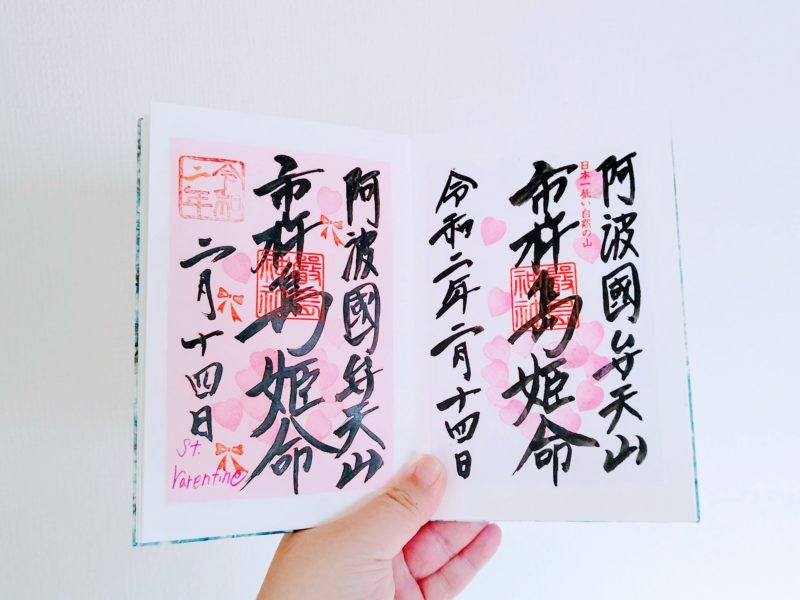 阿波國弁天山
日本一低い自然の山
市杵島姫命
嚴島
神社
令和二年二月十四日
阿波國弁天山
市杵島姫命
嚴島
神社
令和
二年
二月十四日
St.
Varentine